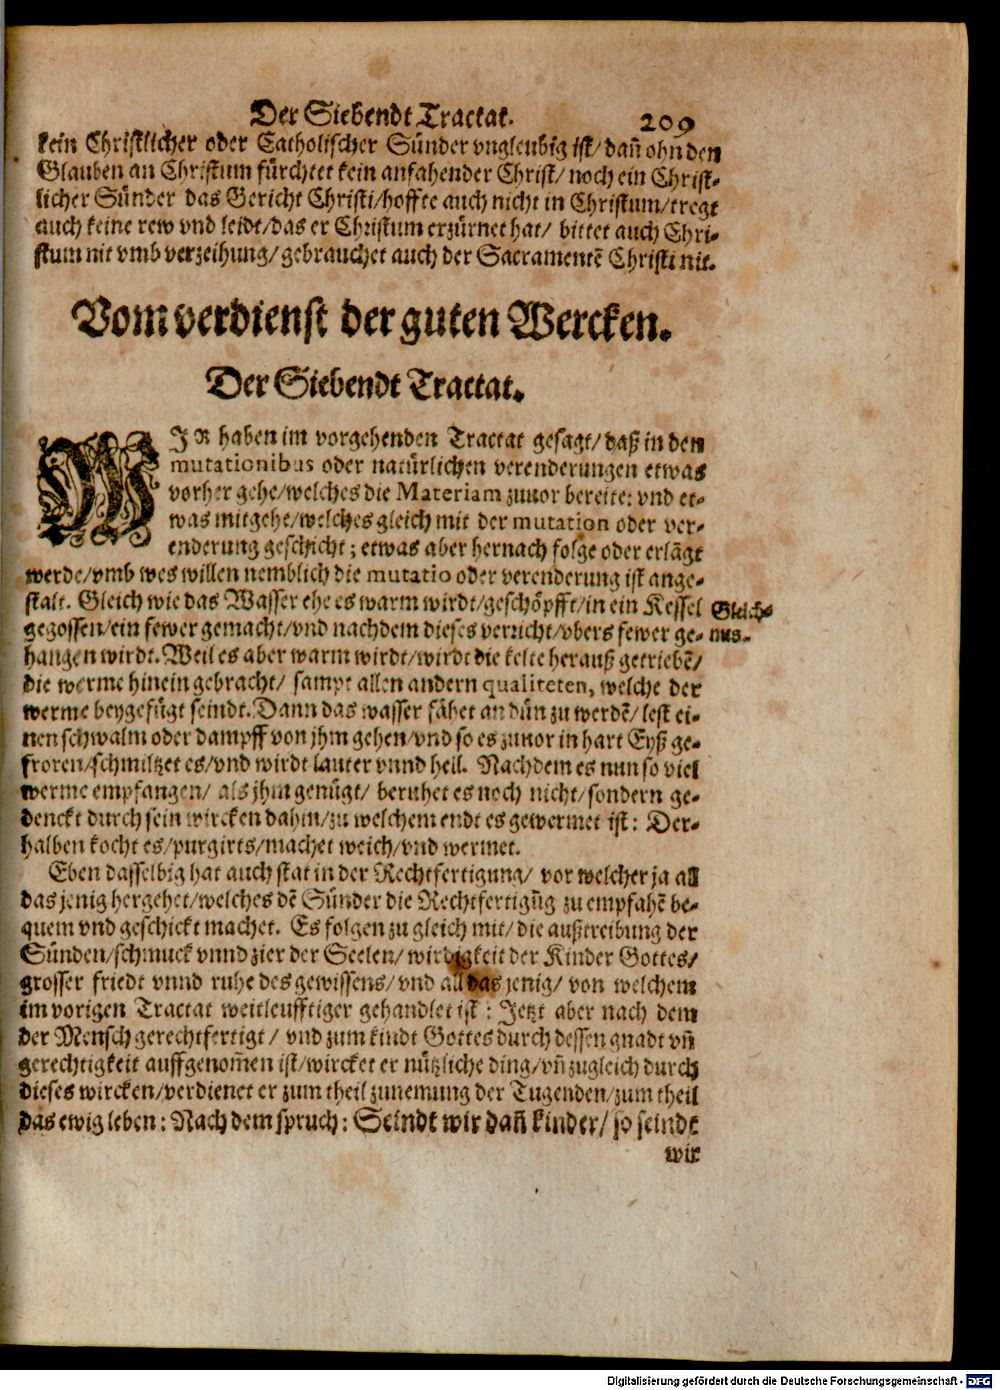 Der Siebendt Tractat. 209
kein Christlicher oder Catholischer Sünder vngleubig ist/ dañ ohn den
Glauben an Christum fürchtet kein anfahender Christ/ noch ein Christ-
licher Sünder das Gericht Christi/hoffte auch nicht in Christum/tregt
auch keine rew vnd leidt/das er Christum erzürnet hat/ bittet auch Chri-
stum nit vmb verzeihung/gebrauchet auch der Sacramentẽ Christi nit.
Vom verdienst der guten Wercken.
Der Siebendt Tractat.
WIR haben im vorgehenden Tractat gesagt/daß in den
mutationibus oder natürlichen verenderungen etwas
vorher gehe/welches die Materiam zuuor bereite: vnd et-
was mitgehe/welches gleich mit der mutation oder ver-
enderung geschicht; etwas aber hernach folge oder erlãgt
werde/vmb wes willen nemblich die mutatio oder verenderung ist ange-
stalt. Gleich wie das Wasser ehe es warm wirdt/geschöpfft/in ein Kessel
Gleich-
gegossen/ein fewer gemacht/vnd nachdem dieses verricht/vbers fewer ge-
nus.
hangen wirdt. Weil es aber warm wirdt/wirdt die kelte herauß getriebẽ/
die werme hinein gebracht/ sampt allen andern qualiteten, welche der
werme beygefügt seindt. Dann das wasser fähet an dün zu werdẽ/ lest ei-
nen schwalm oder dampff von jhm gehen/vnd so es zuuor in hart Eyß ge-
froren/schmiltzet es/vnd wirdt lauter vnnd heil. Nachdem es nun so viel
werme empfangen/ als jhm genügt/ beruhet es noch nicht/sondern ge-
denckt durch sein wircken dahin/zu welchem endt es gewermet ist: Der-
halben kocht es/purgirts/machet weich/vnd wermet.
Eben dasselbig hat auch stat in der Rechtfertigung/ vor welcher ja all
das jenig hergehet/welches dẽ Sünder die Rechtfertigũg zu empfahẽ be-
quem vnd geschickt machet. Es folgen zu gleich mit/ die außtreibung der
Sünden/schmuck vnnd zier der Seelen/ wirdigkeit der Kinder Gottes/
grosser friedt vnnd ruhe des gewissens/ vnd all das jenig/ von welchem
im vorigen Tractat weitleufftiger gehandlet ist: Jetzt aber nach dem
der Mensch gerechtfertigt/ vnd zum kindt Gottes durch dessen gnadt vñ
gerechtigkeit auffgenom̃en ist/wircket er nützliche ding/vñ zugleich durch
dieses wircken/verdienet er zum theil zunemung der Tugenden/zum theil
das ewig leben: Nach dem spruch: Seindt wir dañ kinder/ so seindt
wir
Digitalisierung gefördert durch die Deutsche Forschungsgemeinschaft - DFG